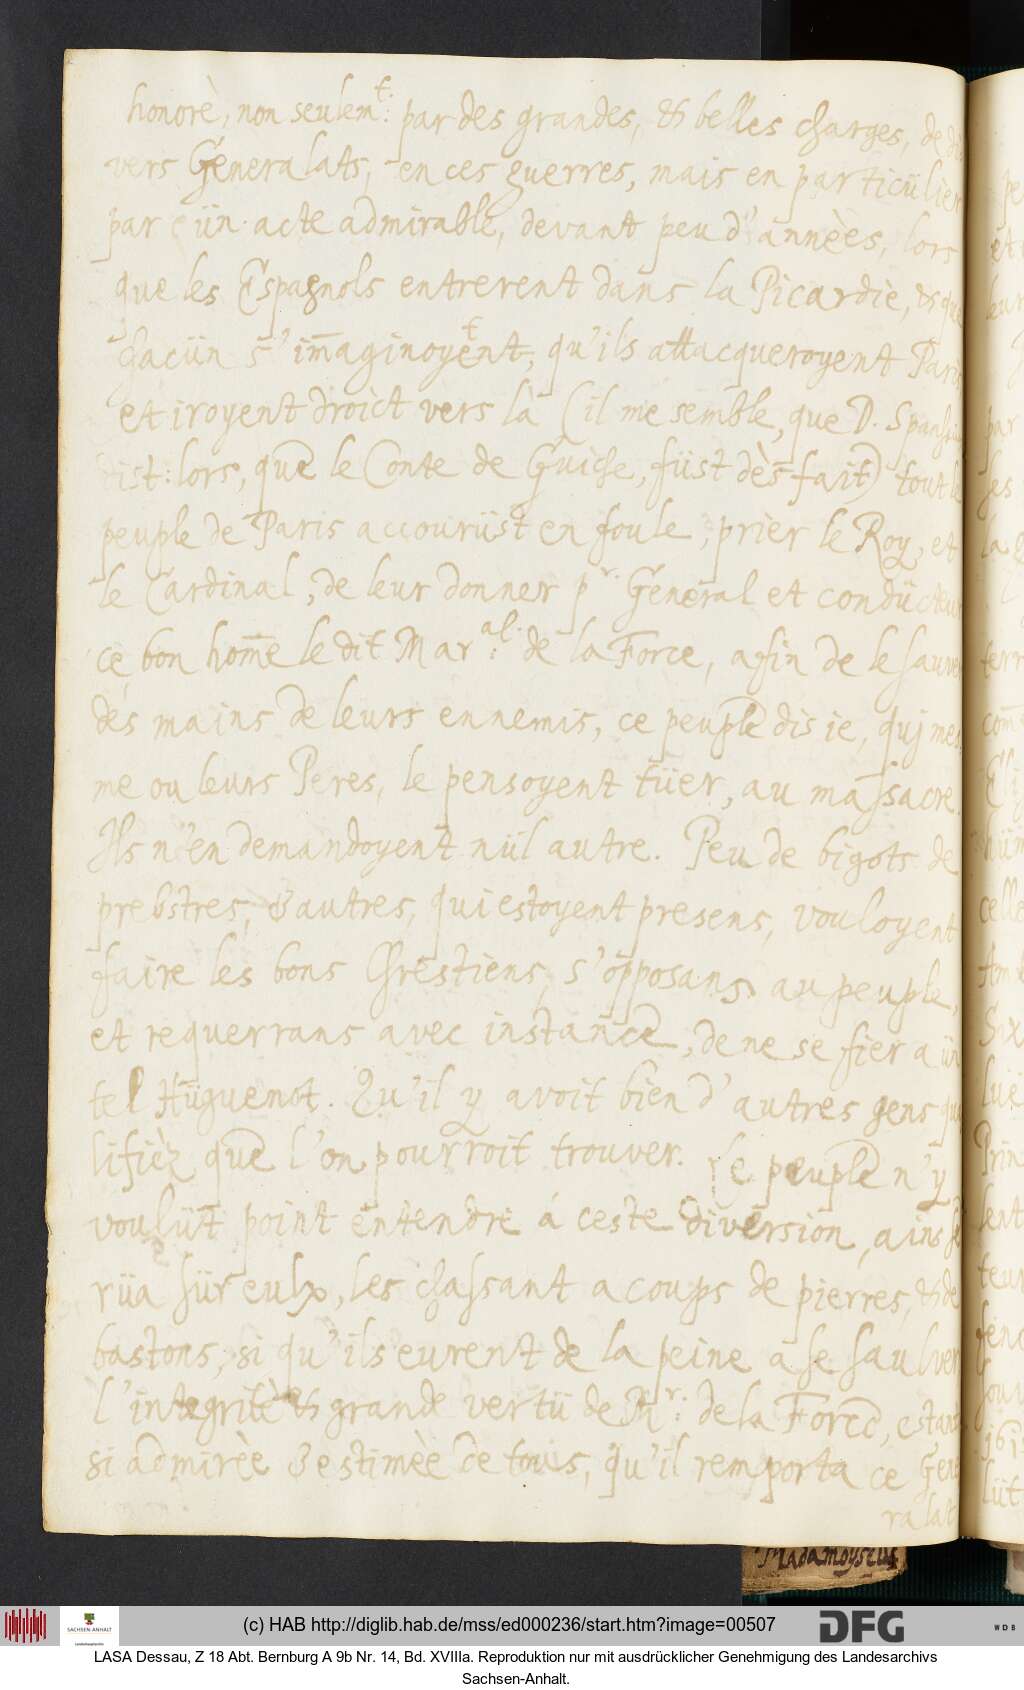 honorè, non seulemt: par des grandes, & belles charges, de di
vers Generalats, en ces guerres, mais en particülier
par ün acte admirable, devant peu d'annèes, lors
que les Espagnols entrerent dans la Picardie, & que
chacün s'im̄aginoyent, qu'ils attacqueroyent Paris
et iroyent droict vers là (il me semble, que D. Span
dist: lors, que le Conte de Guiche, füst dès fait) tout le
peuple de Paris accourüst en foule, prier le Roy, et
le Cardinal, de leur donner pr. General et condücteur
ce bon hom̄e le dit Mar:al. de la Force, afin de le sauver
des mains de leurs ennemis, ce peuple dis ie, quj mes
me ou leurs Peres, le pensoyent tüer, au massacre.
Ils n'en demandoyent nül autre. Peu de bigots de
prebstres, & autres, qui estoyent presens, vouloyent
faire les bons Chrestiens, s'opposans au peuple,
et requerrans avec instance, de ne se fier a ün
tel Hüguenot. Qu'il y avoit bien d'autres gens qua
lifièz que l'on pourroit trouver. Le peuple n'y
voulüt point entendre á ceste diversion, ains se
rüa sür eulx, les chassant a coups de pierres, & de
bastons, si qu'ils eurent de la peine a se saulver
l'integritè & grande vertü de Mr: de la Force, estant
si admirèe & estimèe de tous, qu'il remporta ce Gene
ralat
Madamoyselle
(c) HAB http://diglib.hab.de/mss/ed000236/start.htm?image=00507
SACHSEN-ANHALT
DFG
WDB
LASA Dessau, Z 18 Abt. Bernburg A 9b Nr. 14, Bd. XVIIIa. Reproduktion nur mit ausdrücklicher Genehmigung des Landesarchivs
Sachsen-Anhalt.